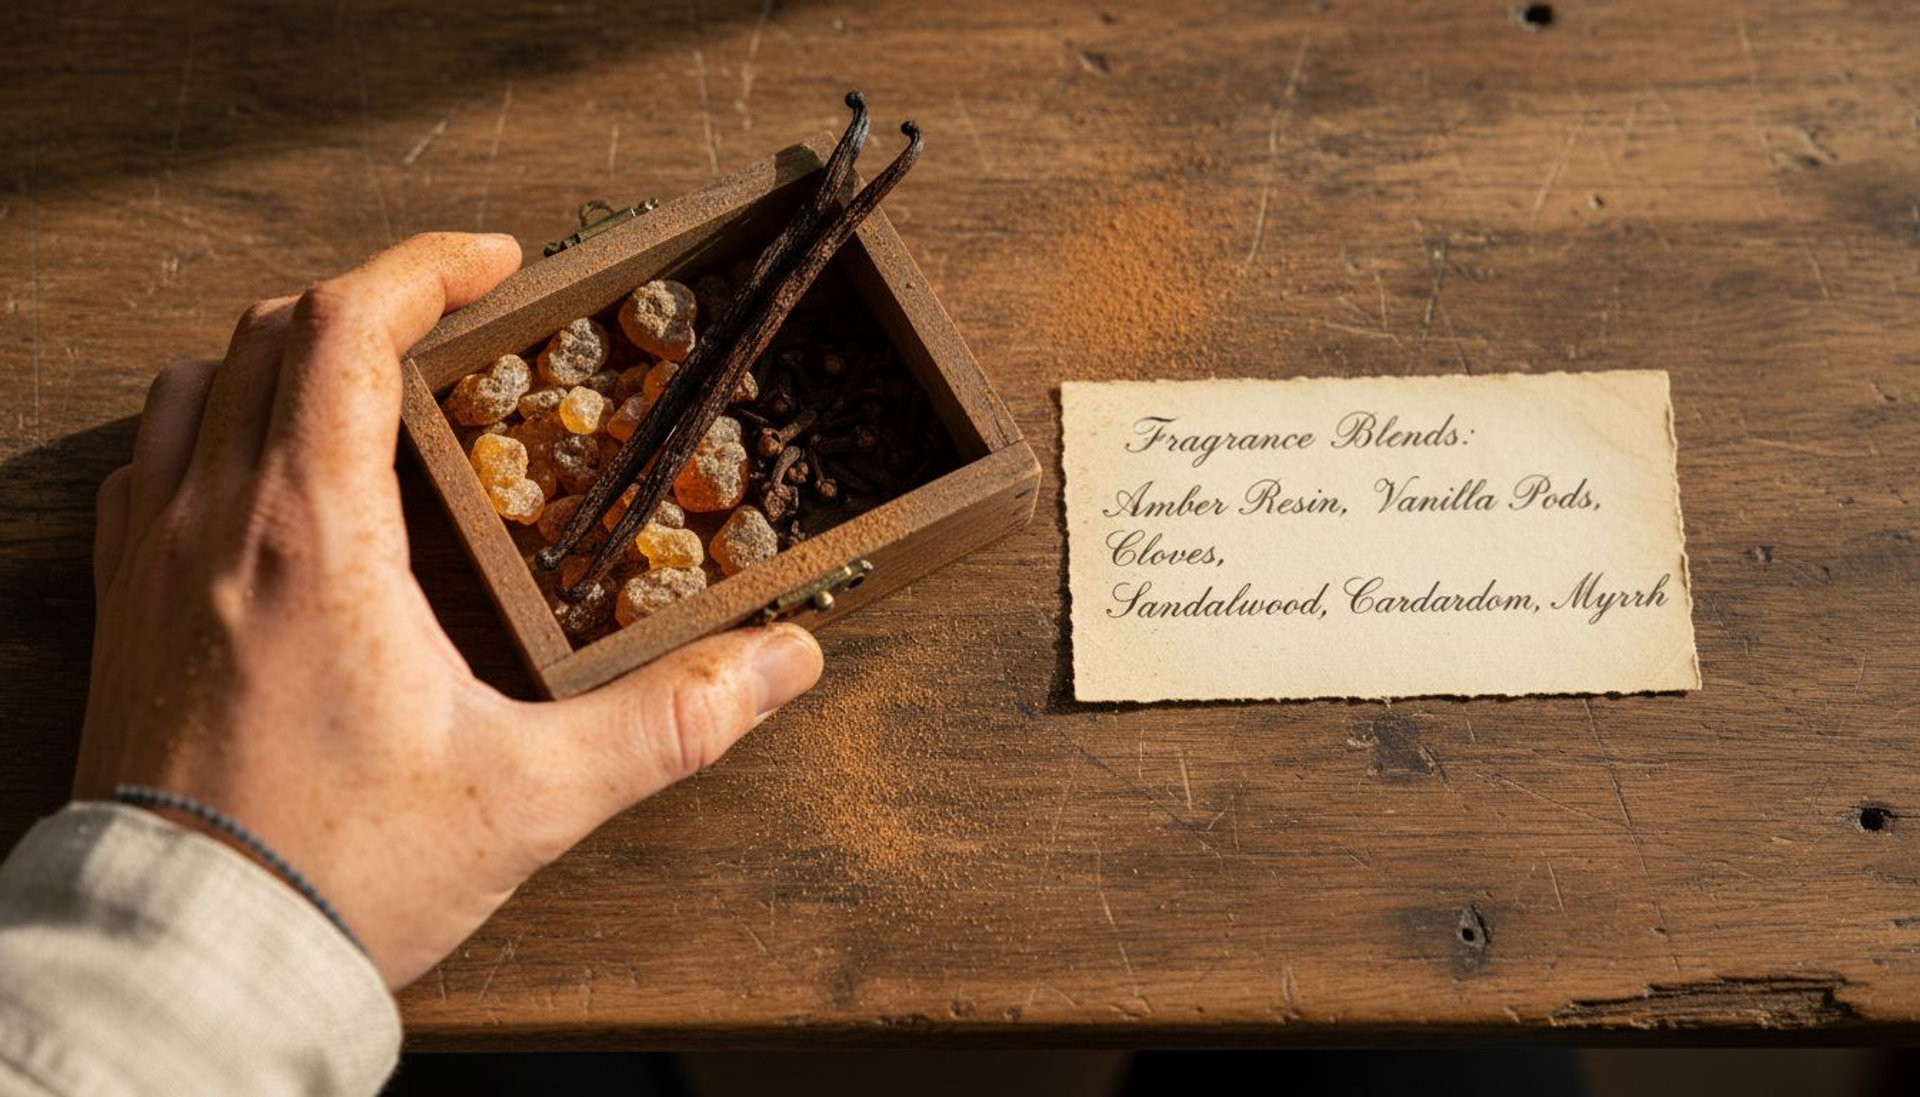 Fragrance Blends:
Amber Resin, Vanilla Pods,
Cloves,
Sandalwood, Cardardom, Myrrh